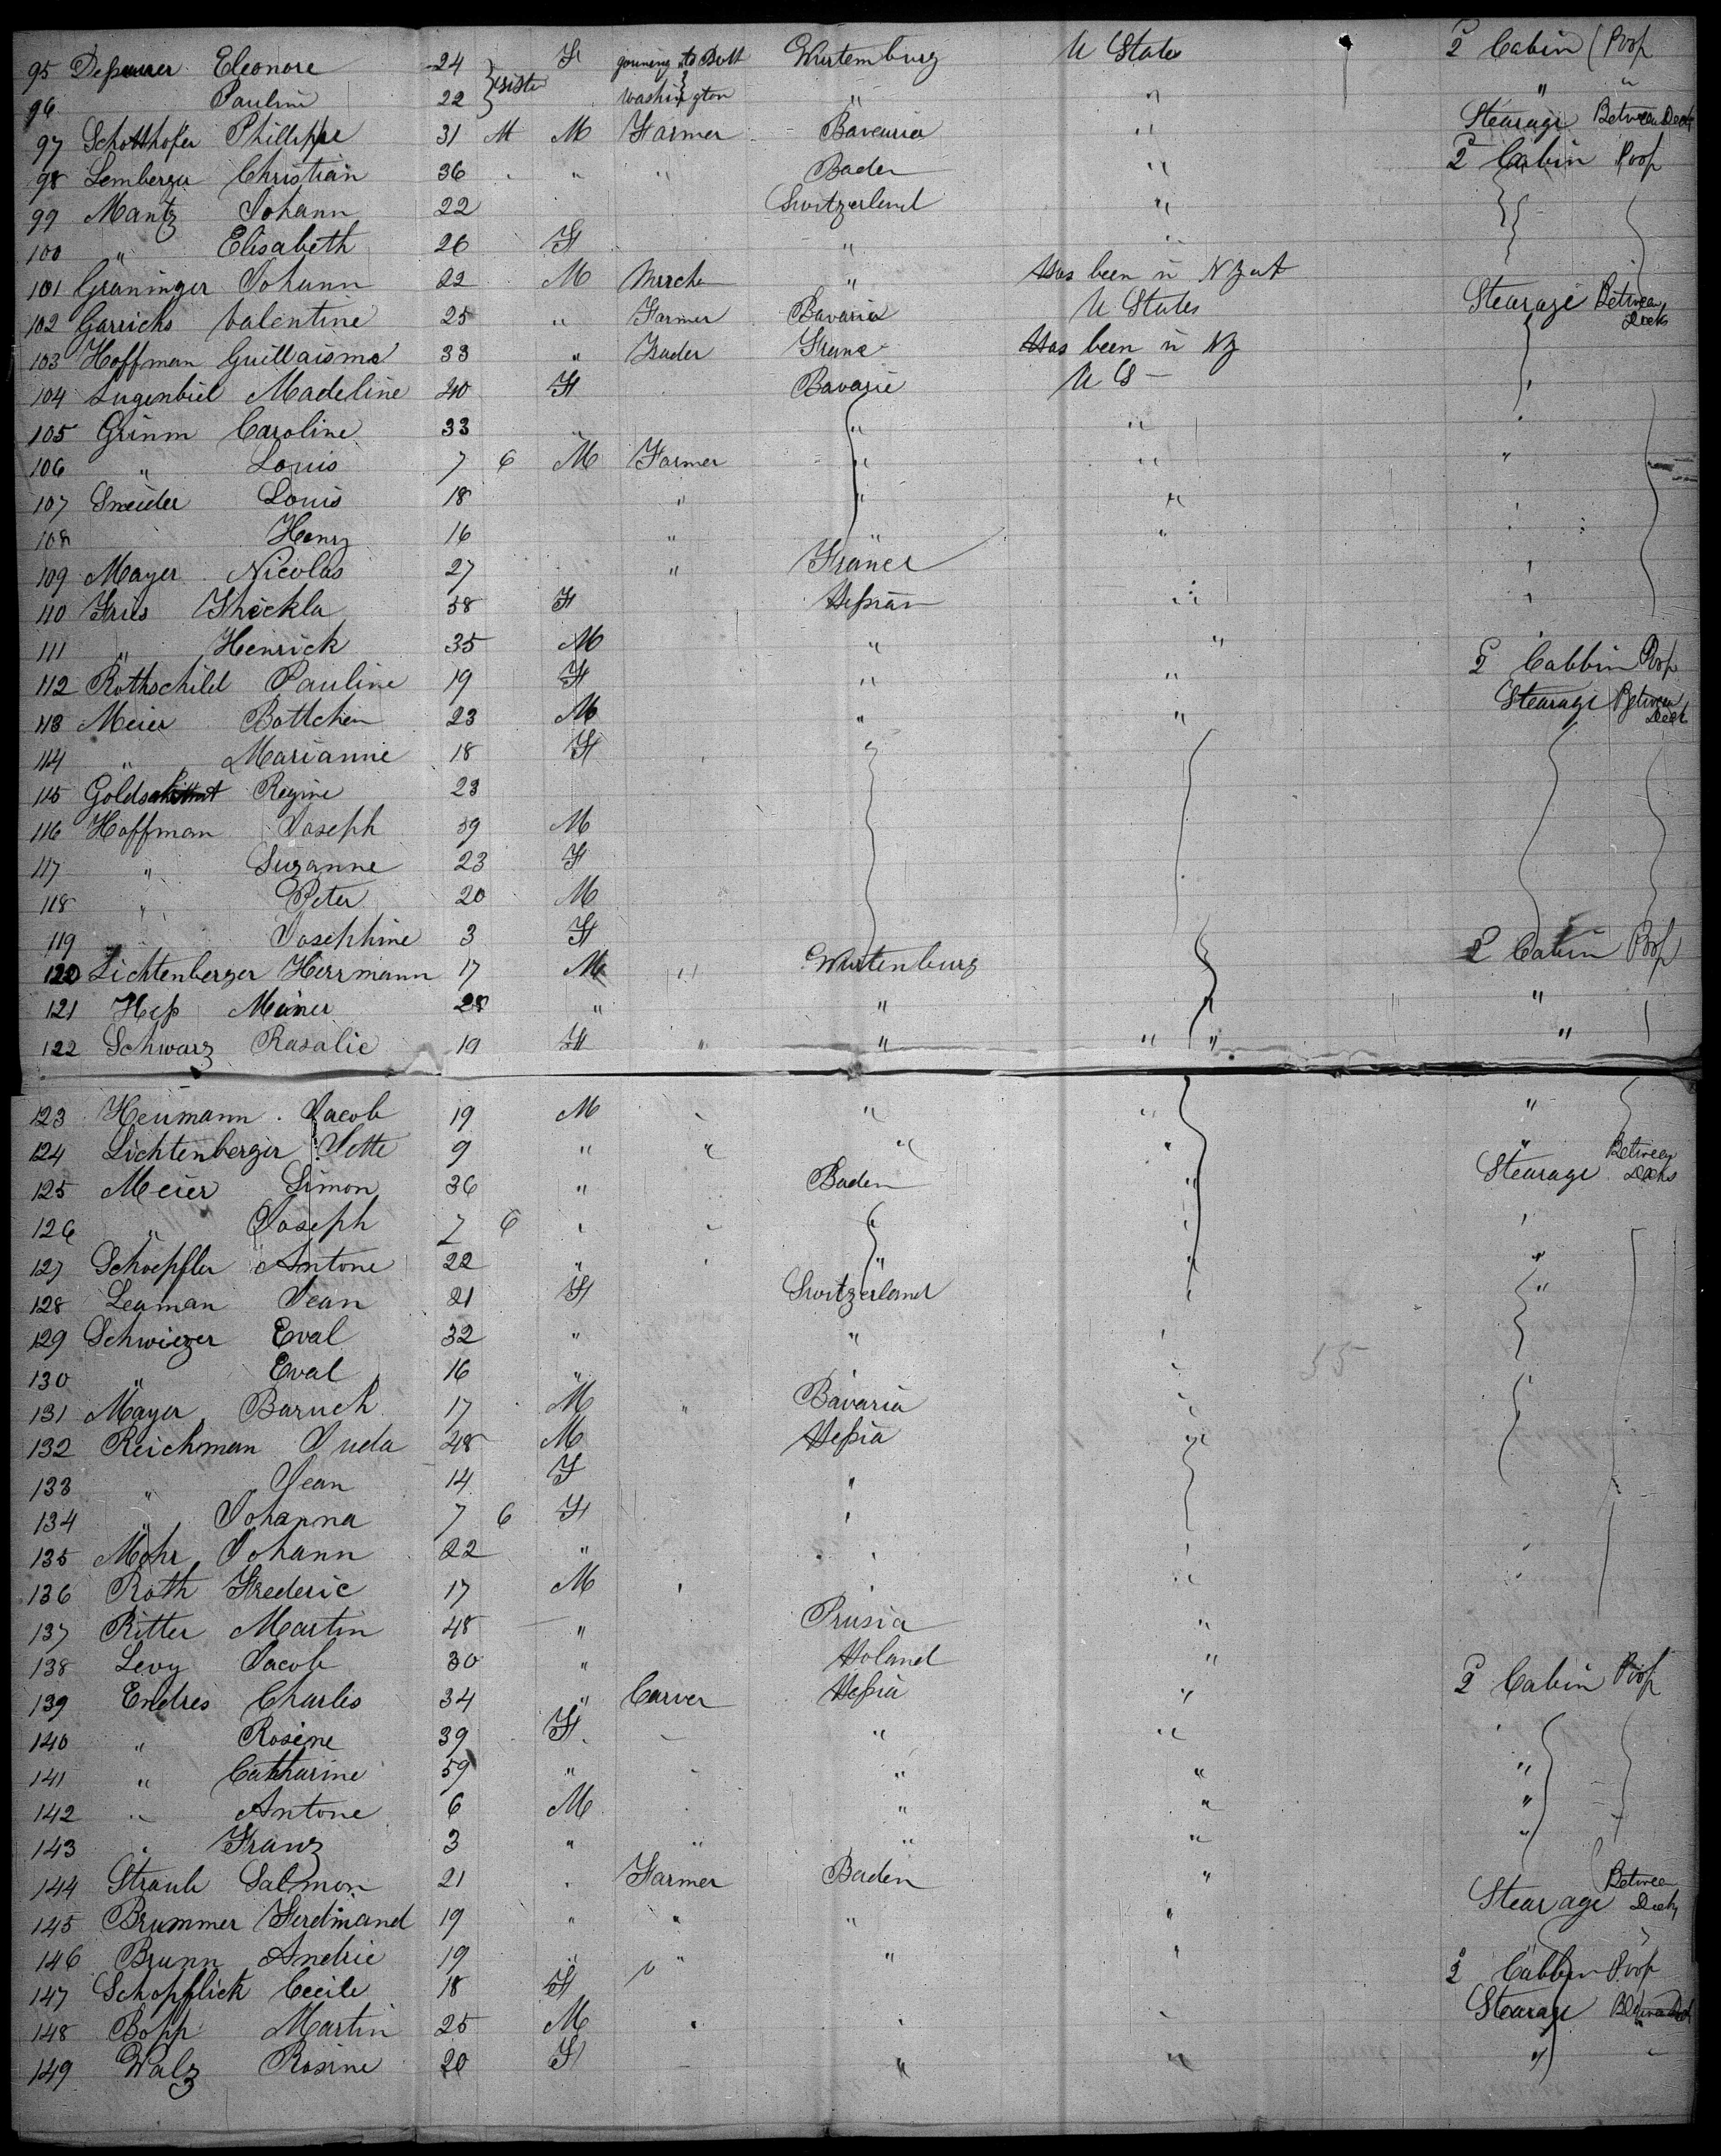 95 Eleonore 24 sister F to Wurtemburg U States 2 Cabin Poop
96 Pauline 22 Washington " " " "
97 Schotthofer Phillippe 31 M M Farmer Bavaria " Stearage Between Deck
98 Lemberger Christian 36 " " Baden " 2 Cabin Poop
99 Mantz Johann 22 Switzerland "
100 " Elisabeth 26 F " "
101 Graninger Johann 22 M " Has been in
102 Garrichs Valentine 25 " Farmer Bavaria U States Stearage Between Decks
103 Hoffman 33 " France Has been in
104 Lugenbiel Madeline 40 F Bavarie U S
105 Grinm Caroline 33 " " "
106 " Louis 7 6 M Farmer " " "
107 Sneider Louis 18 " " "
108 Henry 16 " " "
109 Mayer Nicolas 27 " France
110 Fries 58 F "
111 " Henrick 35 M " "
112 Rothschild Pauline 19 F " " 2 Cabbin Poop
113 Meier 23 M " " Stearage Between Deck
114 " Marianne 18 F "
115 Regine 23
116 Hoffman Joseph 59 M
117 " Suzanne 23 F
118 " Peter 20 M
119 " Josephine 3 F
120 Lichtenberger Herrmann 17 M " Wurtenburg 2 Cabin Poop
121 Hess 28 " " " "
122 Schwarz Rosalie 19 F " " " " "
123 Heumann Jacob 19 M " " "
124 Lichtenberger Jette 9 " " " " "
125 Meier Simon 36 " Baden " Stearage Between Decks
126 " Joseph 7 6
127 Schoepfler Antone 22 " " " "
128 Leaman Jean 21 F Switzerland "
129 Schwiezer Eval 32 " "
130 " Eval 16 "
131 Mayer Baruch 17 M " Bavaria
132 Reichman Juda 48 M Hessia "
133 " Jean 14 F "
134 " Johanna 7 6 F
135 Mohr Johann 22 "
136 Roth Frederic 17 M "
137 Ritter Martin 48 " Prusia "
138 Levy Jacob 30 " Holand "
139 Endres Charles 34 " Carver Hessia " 2 Cabin Poop
140 " Rosine 39 F " "
141 " Catharine 59 " " " "
142 " Antone 6 M " " "
143 " Franz 3 " " " " "
144 Straub Salmon 21 Farmer Baden " Stearage Between Decks
145 Brummer Ferdinand 19 " " " "
146 Brunn Andrie 19 " " " " 2 Cabbin Poop
147 Schopflick Cecile 18 F Stearage
148 Bopp Martin 25 M
149 Walz Rosine 20 F " " "